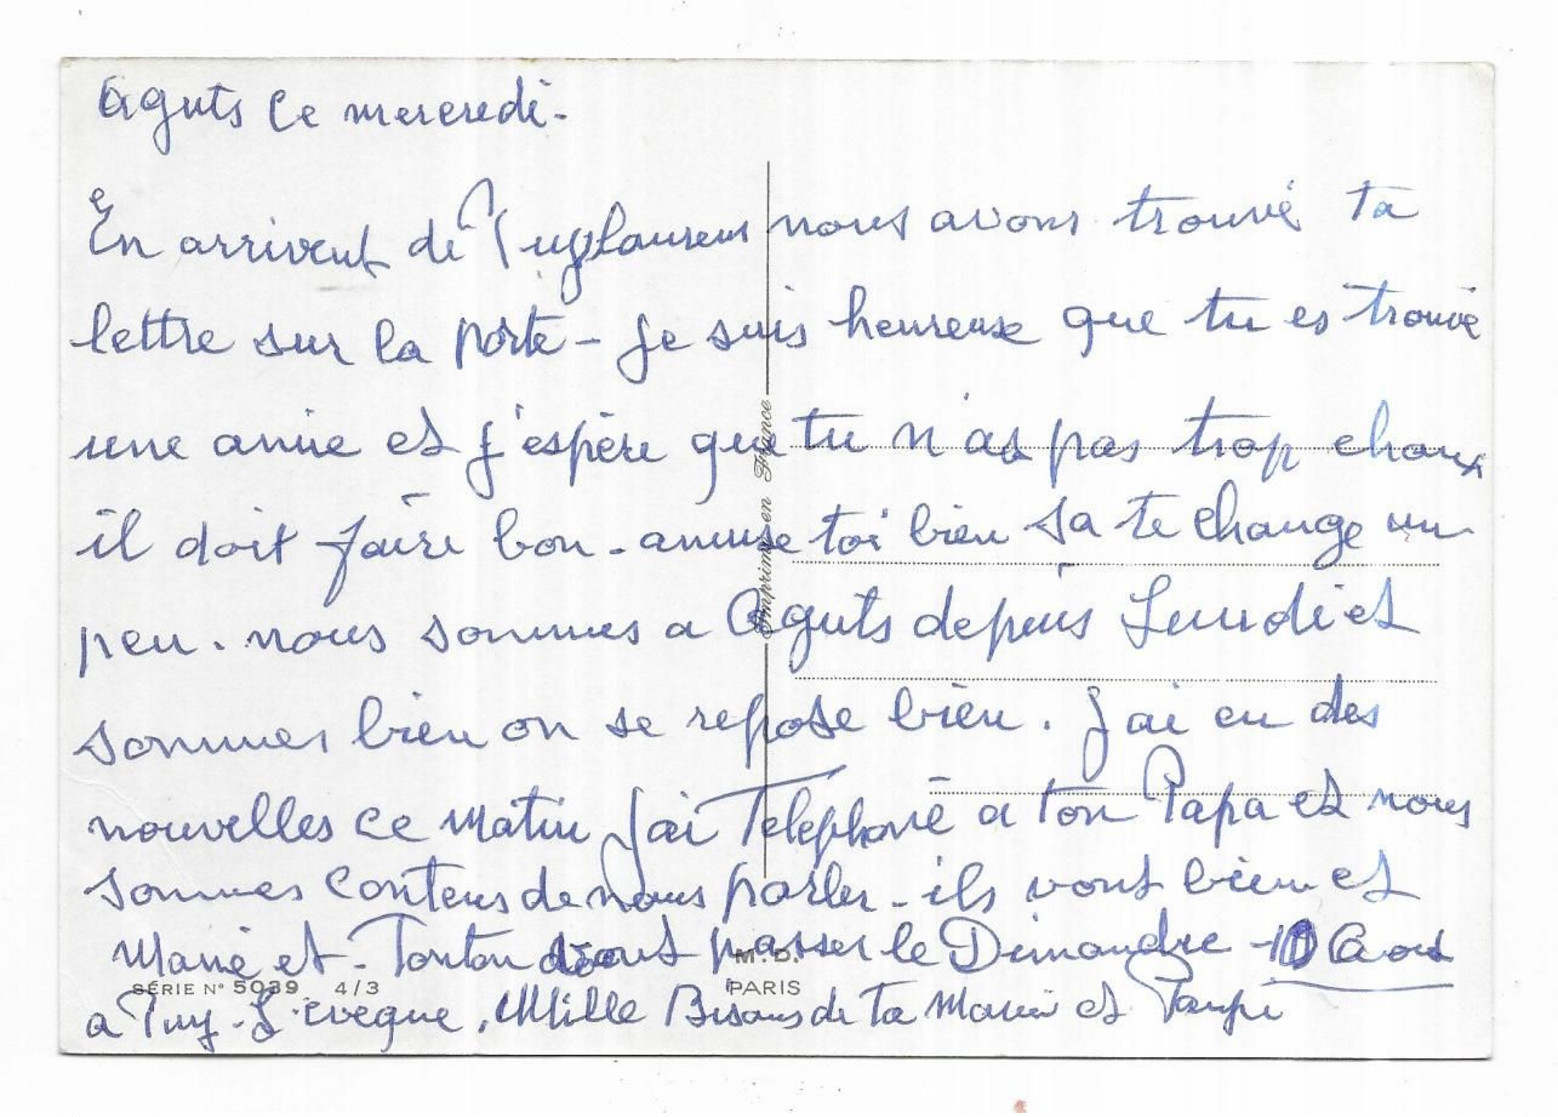 Aguts Ce mercredi -
En arrivent de Puylaurens nous avons trouvé ta
lettre sur la porte - je suis heureuse que tu es trouvé
une amie et j'espère que tu n'as pas trop chaux
il doit faire bon - amuse toi bien sa te change un
peu. nous sommes a Aguts depuis Lundi et
sommes bien on se repose bien. j'ai eu des
nouvelles ce matin j'ai Téléphoné a ton Papa et nous
sommes contens de nous parler - ils vont bien et
Mamé et - Tonton vont passer le Dimandre - 10 Aout
a Puy - L'eveque. Mille Bisous de ta Mami et Papi
Imprimé en France
M. D.
PARIS
SÉRIE N° 5039 4/3